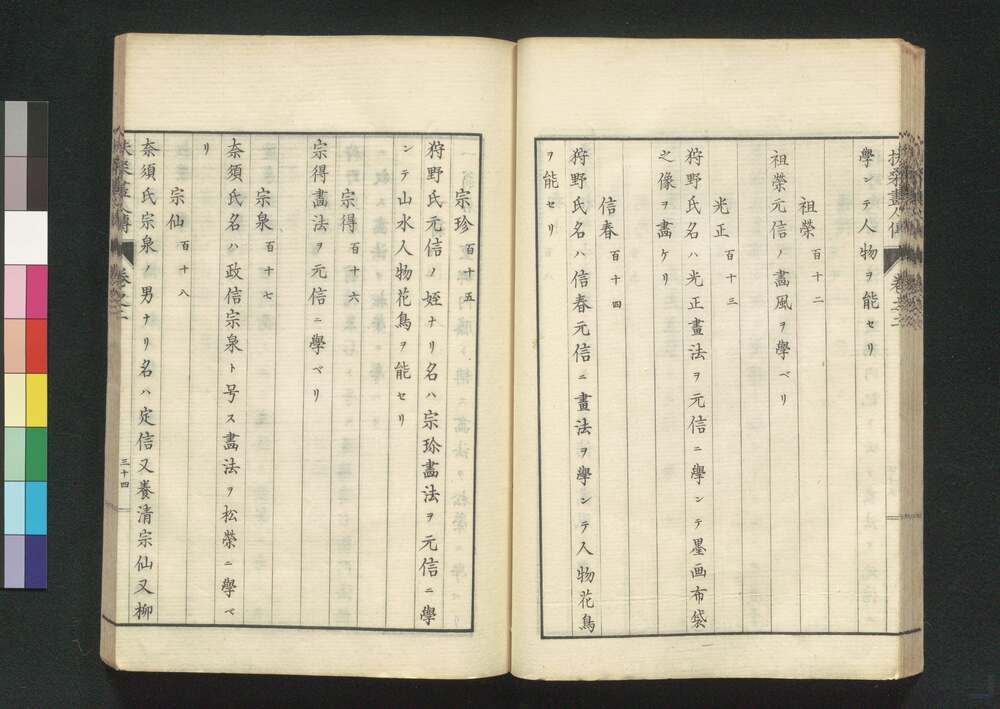 扶桑畫人傳 巻之二
學ンテ人物ヲ能セリ
祖榮 百十二
祖榮元信ノ畵風ヲ學ベリ
光正 百十三
狩野氏名ハ光正畫法ヲ元信ニ學ンテ墨画布袋
之像ヲ畵ケリ
信春 百十四
狩野氏名ハ信春元信ニ畫法ヲ學ンテ人物花鳥
ヲ能セリ
宗珍 百十五
狩野氏元信ノ姪ナリ名ハ宗珍畵法ヲ元信ニ學
ンテ山水人物花鳥ヲ能セリ
宗得 百十六
宗得畵法ヲ元信ニ學ベリ
宗泉 百十七
奈須氏名ハ政信宗泉ト号ス畵法ヲ松榮ニ學ベ
リ
宗仙 百十八
奈須氏宗泉ノ男ナリ名ハ定信又養清宗仙又柳
扶桑畫人傳 巻之二 三十四